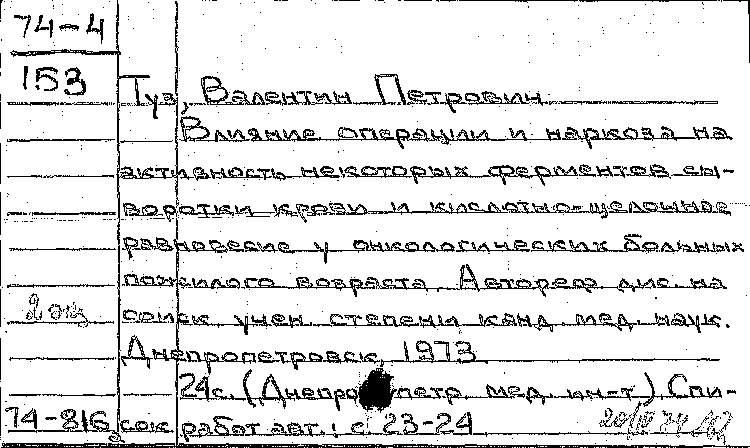 74-4
153
Туз, Валентин Петрович
Влияние операции и наркоза на
активность некоторых ферментов сы-
воротки крови и кислотно-щелочное
равновесие у онкологических больных
пожилого возраста. Автореф. дис. на
2 экз
соиск. учен. степени канд. мед. наук.
Днепропетровск, 1973.
24с. (Днепропетр. мед. ин-т). Спи-
74-816 сок работ авт.: с. 23-24